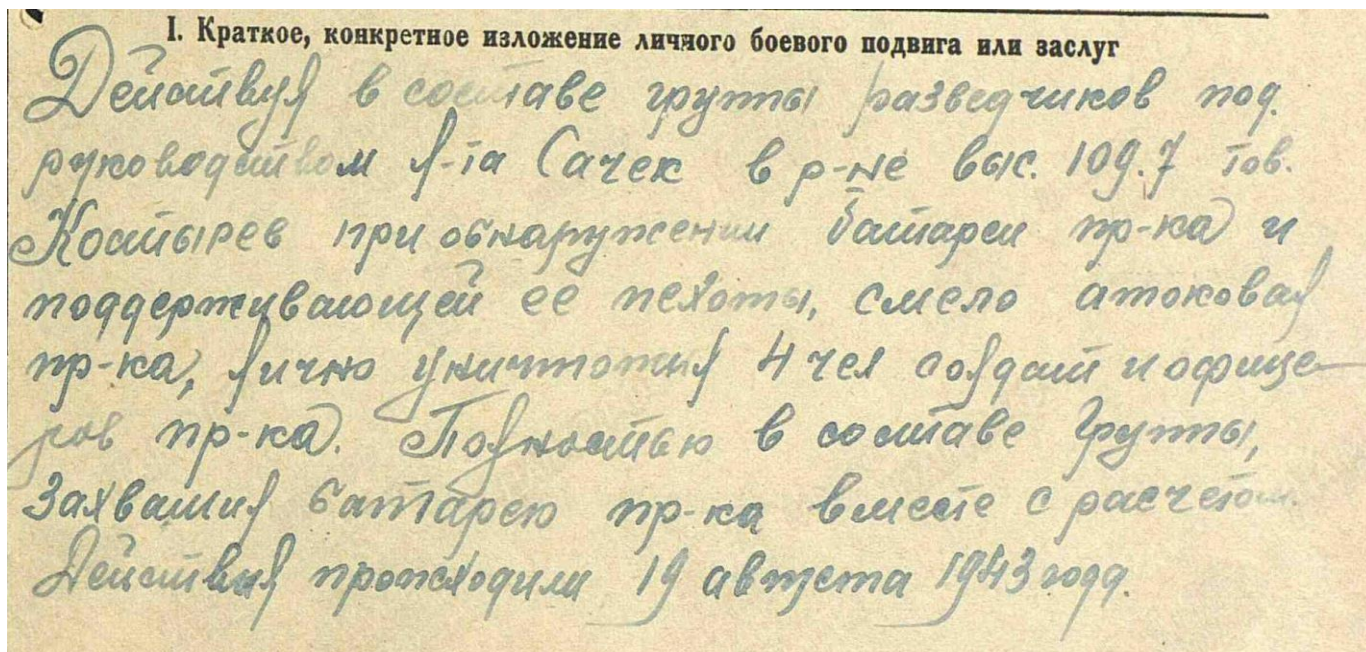 I. Краткое, конкретное изложение личного боевого подвига или заслуг
Действуя в составе группы разведчиков под
руководством л-та Сачек в р-не выс. 109.7 тов.
Костырев при обнаружении батареи пр-ка и
поддерживающей ее пехоты, смело атоковал
пр-ка, лично уничтожил 4 чел солдат и офице-
ров пр-ка. Полностью в составе группы,
захватил батарею пр-ка вместе с расчетом.
Действия происходили 19 августа 1943 года.